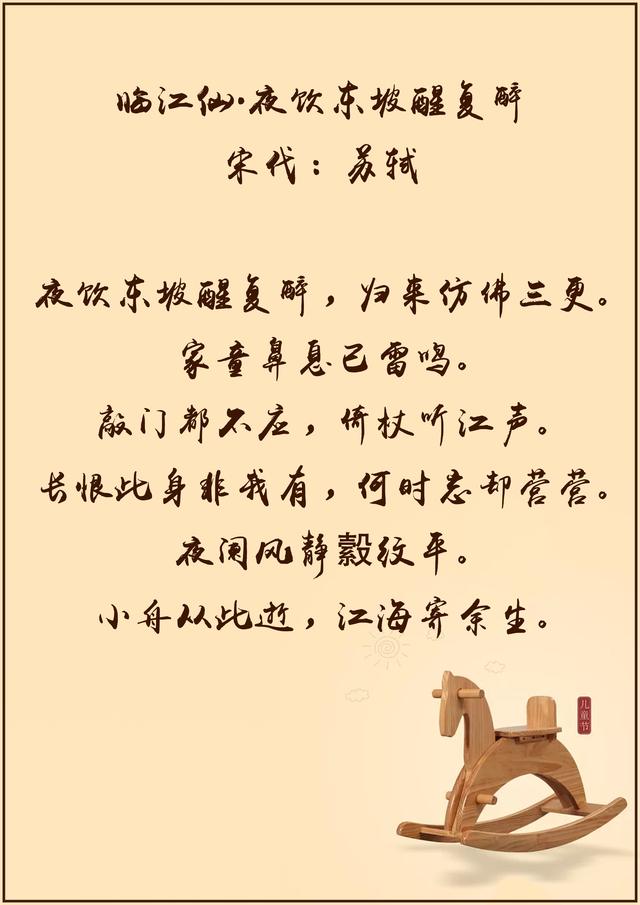 临江仙·夜饮东坡醒复醉
宋代：苏轼
夜饮东坡醒复醉，归来仿佛三更。
家童鼻息已雷鸣。
敲门都不应，倚杖听江声。
长恨此身非我有，何时忘却营营。
夜阑风静縠纹平。
小舟从此逝，江海寄余生。
儿童节